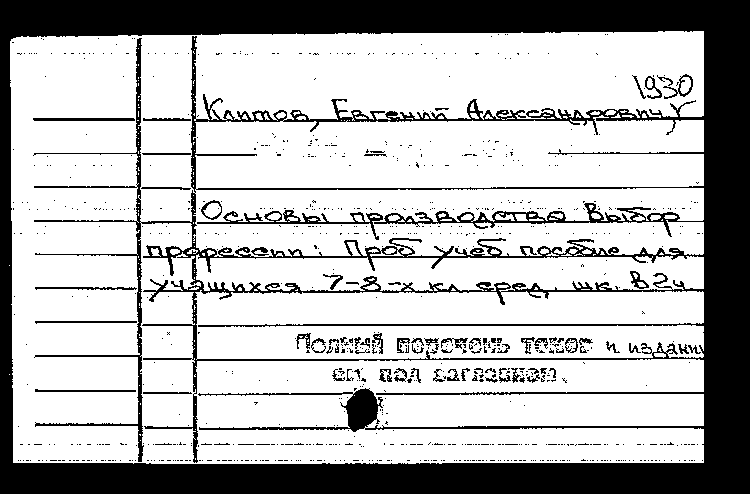 1930
Климов, Евгений Александрович,
Основы производства Выбор
профессии: Проб учеб. пособие для
учащихся 7-8-х кл сред. шк. В 2ч
Полный перечень томов и издани
см. под заглавием.